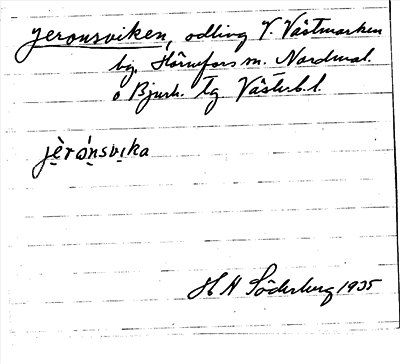 Jeronsviken, odling V. Västmarken
by, Hörnefors m. Nordmal.
o Bjurh. tg Västerb. l.
jèrónsvika
H A Söderberg 1935